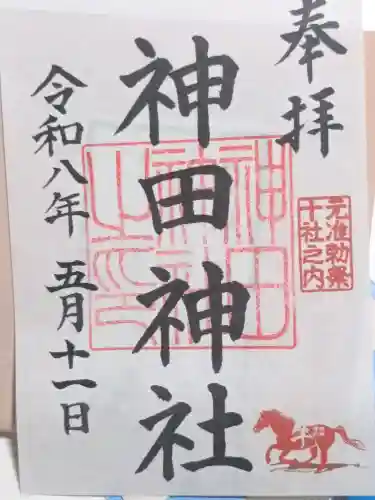 奉拝
元准勅祭
十社之内
神田神社
令和八年 五月十一日